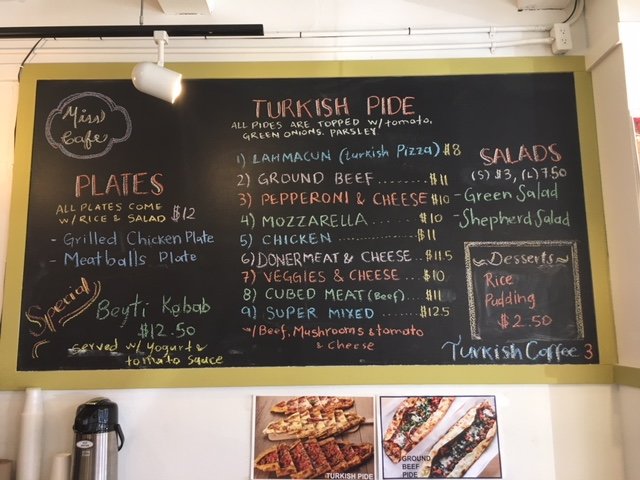 Miss
Cafe
PLATES
ALL PLATES COME
W/RICE & SALAD $12
- Grilled Chicken Plate
- Meatballs Plate
Special
Beyti Kebab
$12.50
served w/ Yogurt &
tomato sauce
TURKISH PIDE
ALL PIDES ARE TOPPED w/tomato,
GREEN ONIONS. PARSLEY.
1) LAHMACUN (turkish Pizza) $8
2) GROUND BEEF........$11
3) PEPPERONI & CHEESE $10
4) MOZZARELLA........$10
5) CHICKEN ..............$11
6) DONERMEAT & CHEESE...$11.5
7) VEGGIES & CHEESE....$10
8) CUBED MEAT (Beef)...$11
9) SUPER MIXED......$12.5
w/Beef, Mushrooms & tomato
& Cheese
SALADS
(S) $3, (L) 7.50
- Green Salad
- Shepherd Salad
Desserts
Rice
Pudding
$2.50
Turkish Coffee 3
TURKISH PIDE
GROUND
BEEF
PIDE